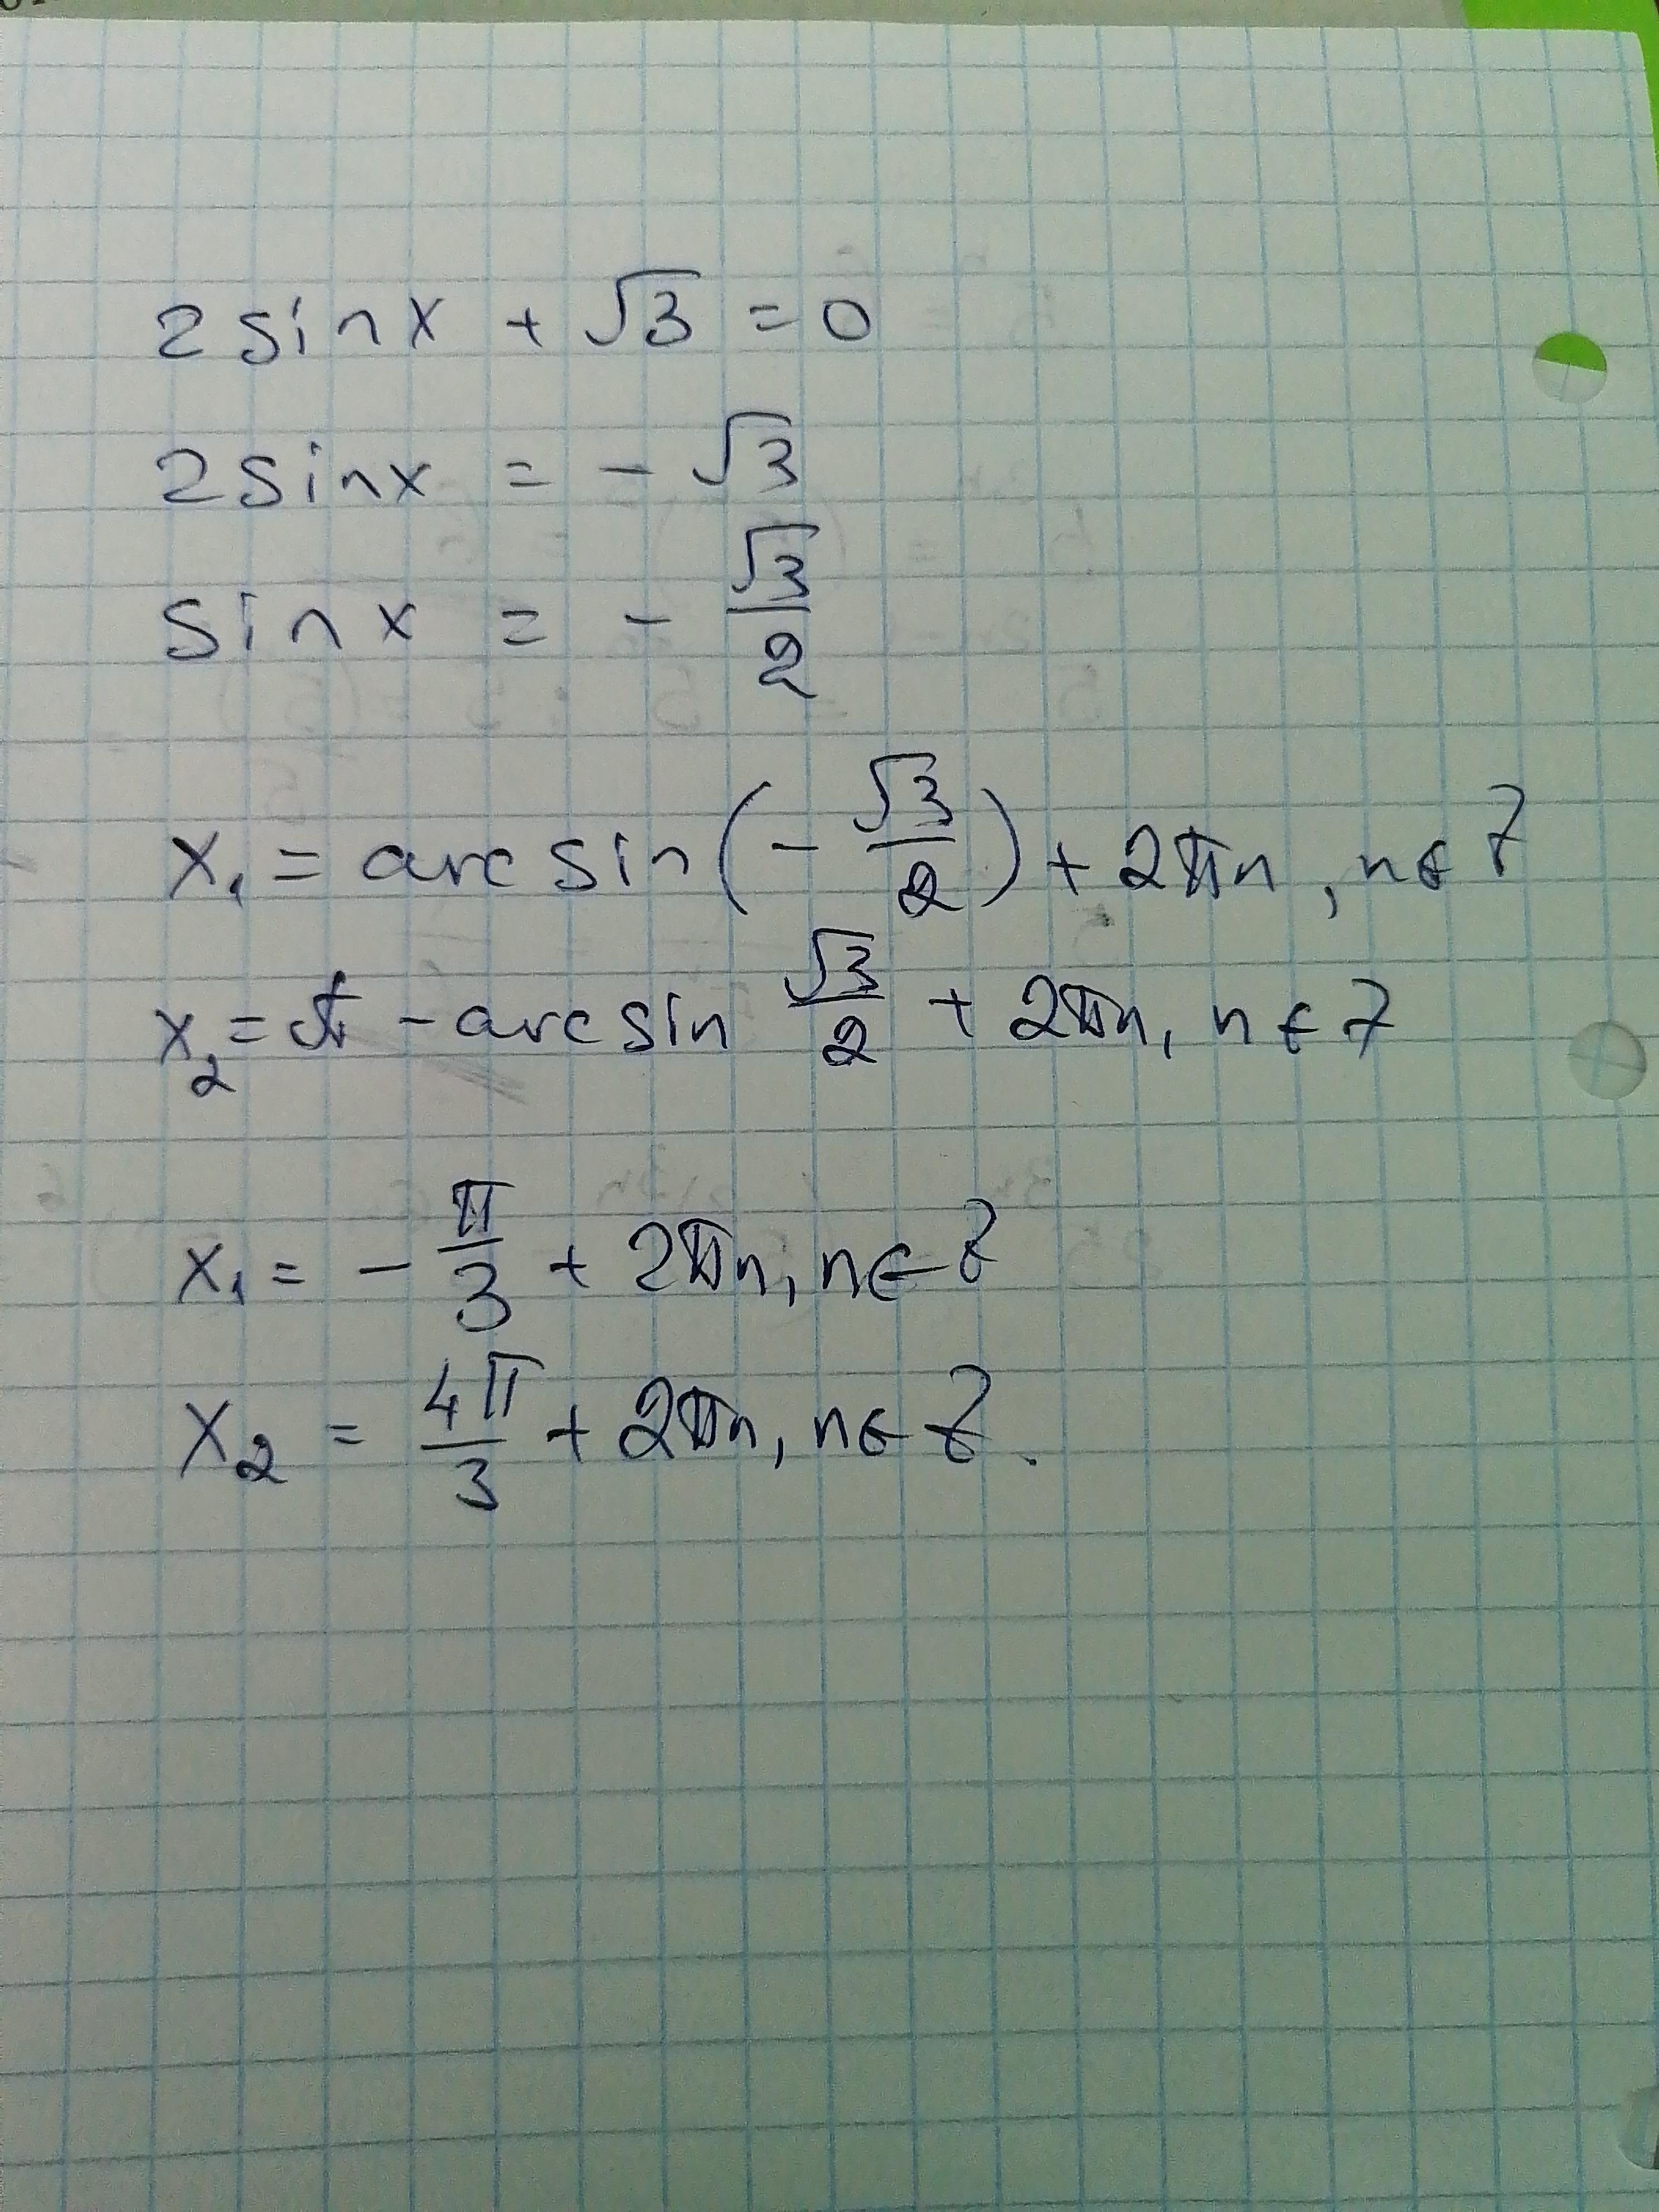 2 sin x + √3 = 0
2 sin x = - √3
sin x = - √3/2
x₁ = arc sin (- √3/2) + 2πn , n ∈ Z
x₂ = π - arc sin √3/2 + 2πn, n ∈ Z
x₁ = - π/3 + 2πn, n ∈ Z
x₂ = 4π/3 + 2πn, n ∈ Z.